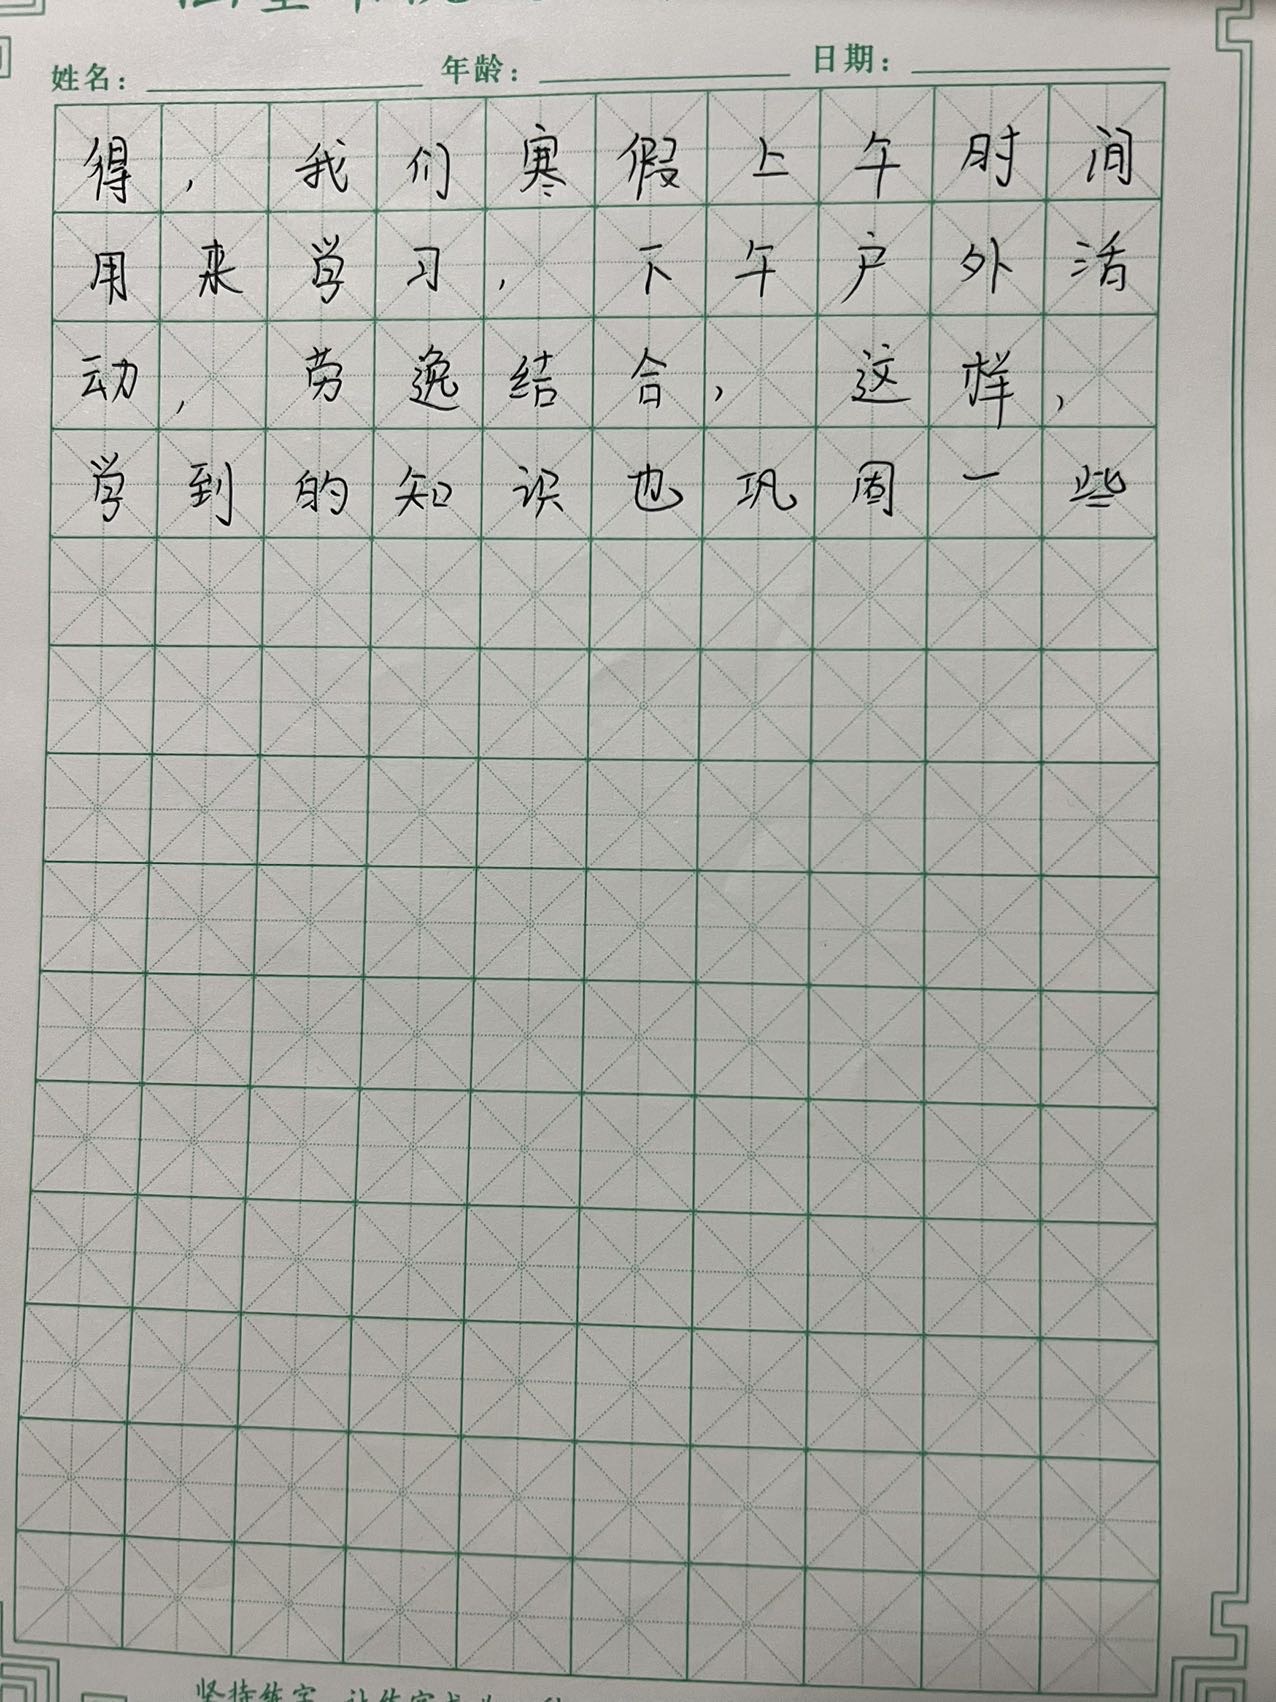 姓名： 年龄： 日期：
得，我们寒假上午时间
用来学习，下午户外活
动，劳逸结合，这样，
学到的知识也巩固一些
坚持练字